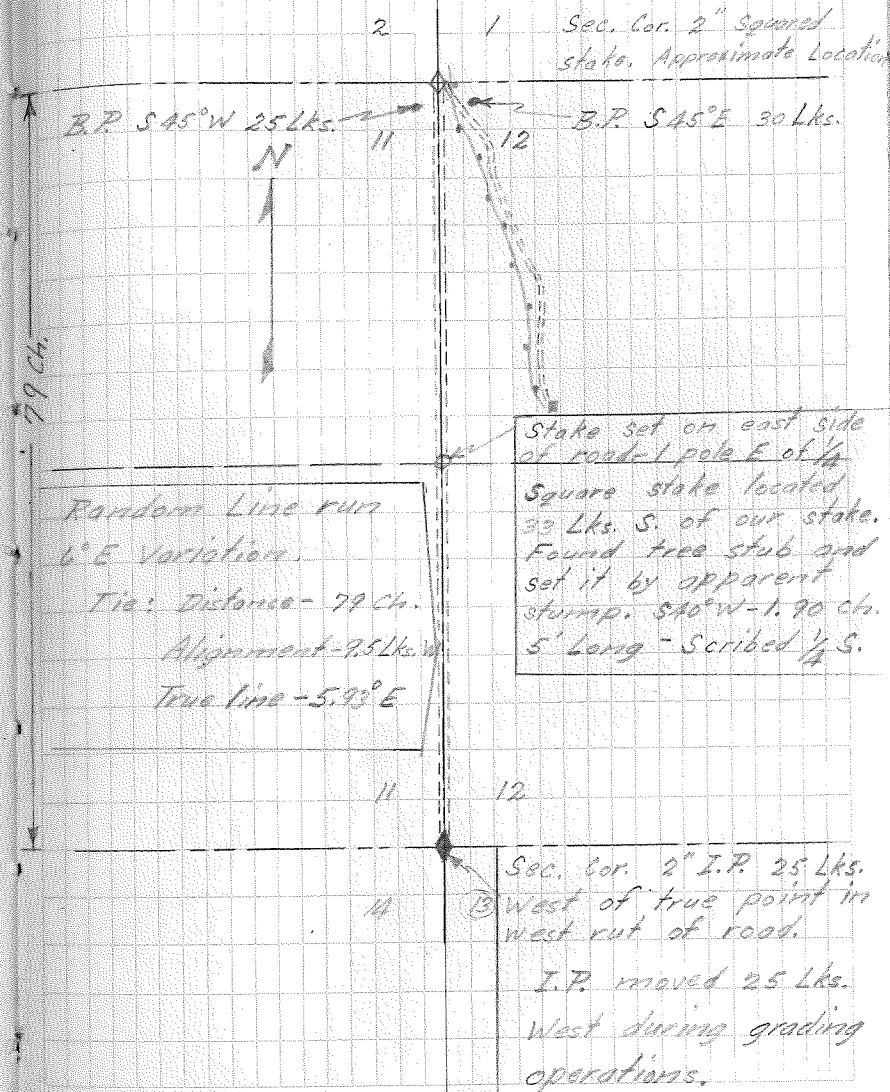 2 1
Sec. Cor. 2" Squared
stake. Approximate Location
B.P. S 45° W 25 Lks.
11 12
B.P. S 45° E 30 Lks.
N
79 Ch.
Stake set on east side
of road - 1 pole E of 1/4
Square stake located
33 Lks. S. of our stake.
Found tree stub and
set it by apparent
stump. S 40° W - 1.90 ch.
5' Long - Scribed 1/4 S.
Random Line run
6° E Variation.
Tie: Distance - 79 Ch.
Alignment - 9.5 Lks. W
True line - 5.93° E
11 12
Sec. Cor. 2" I.P. 25 Lks.
West of true point in
west rut of road.
14 13
I.P. moved 25 Lks.
West during grading
operations.